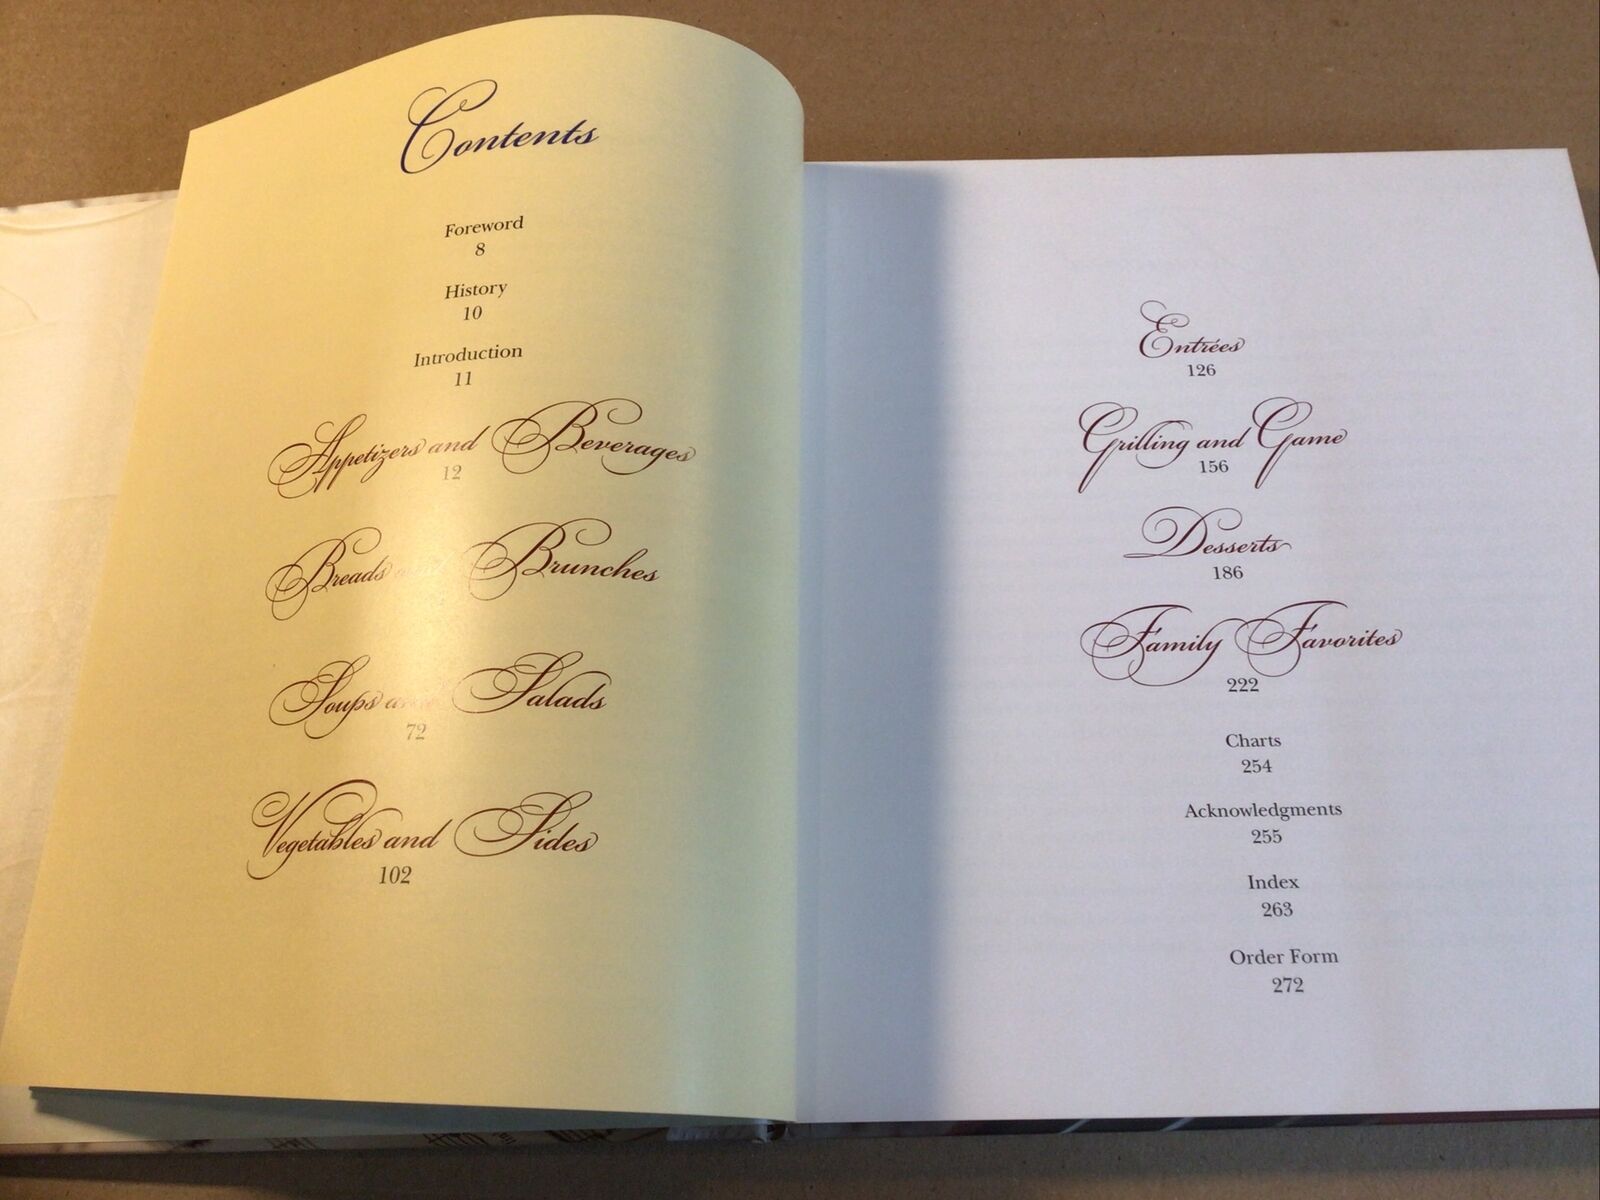 Contents
Foreword
8
History
10
Introduction
11
Appetizers and Beverages
12
Breads Brunches
Soups and Salads
72
Vegetables and Sides
102
Entrées
126
Grilling and Game
156
Desserts
186
Family Favorites
222
Charts
254
Acknowledgments
255
Index
263
Order Form
272